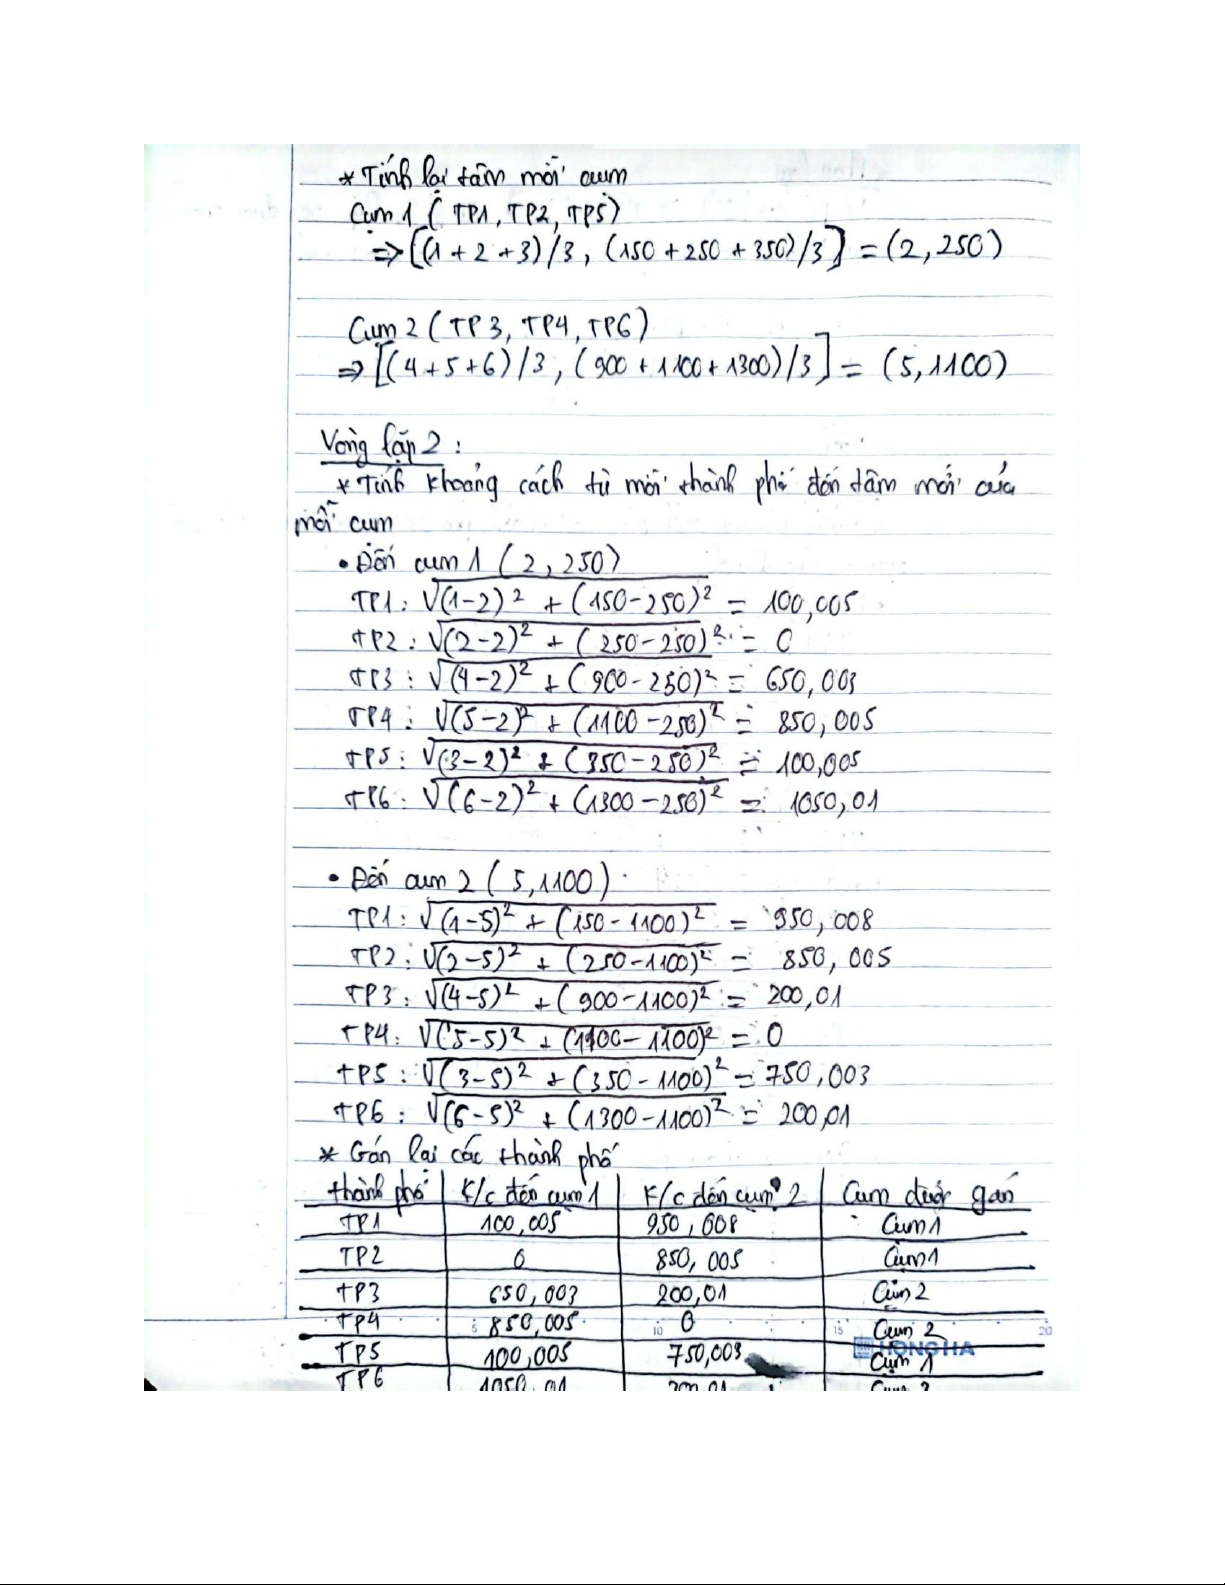 * Tính lại tâm mỗi cụm
Cụm 1 ( TP1, TP2, TP5)
=> [(1 + 2 + 3)/3, (150 + 250 + 350)/3] = (2, 250)
Cụm 2 ( TP3, TP4, TP6)
=> [(4+5+6)/3, (900 + 1100 + 1300)/3] = (5, 1100)
Vòng lặp 2 :
* Tính khoảng cách từ mỗi thành phố đến tâm mới của
mỗi cụm
• Đến cụm 1 ( 2, 250)
TP1 : √(1-2)² + (150-250)² = 100,005
TP2 : √(2-2)² + (250-250)² = 0
TP3 : √(4-2)² + (900-250)² = 650,003
TP4 : √(5-2)² + (1100-250)² = 850,005
TP5 : √(3-2)² + (350-250)² = 100,005
TP6 : √(6-2)² + (1300-250)² = 1050,01
• Đến cụm 2 ( 5, 1100)
TP1 : √(1-5)² + (150-1100)² = 950,008
TP2 : √(2-5)² + (250-1100)² = 850,005
TP3 : √(4-5)² + (900-1100)² = 200,01
TP4 : √(5-5)² + (1100-1100)² = 0
TP5 : √(3-5)² + (350-1100)² = 750,003
TP6 : √(6-5)² + (1300-1100)² = 200,01
* Gán lại các thành phố
thành phố K/c đến cụm 1 K/c đến cụm 2 Cụm được gán
TP1 100,005 950,008 Cụm 1
TP2 0 850,005 Cụm 1
TP3 650,003 200,01 Cụm 2
TP4 850,005 0 Cụm 2
5 10 15 20
HONG HA
TP5 100,005 750,003 Cụm 1
TP6 1050,01 200,01 Cụm 2